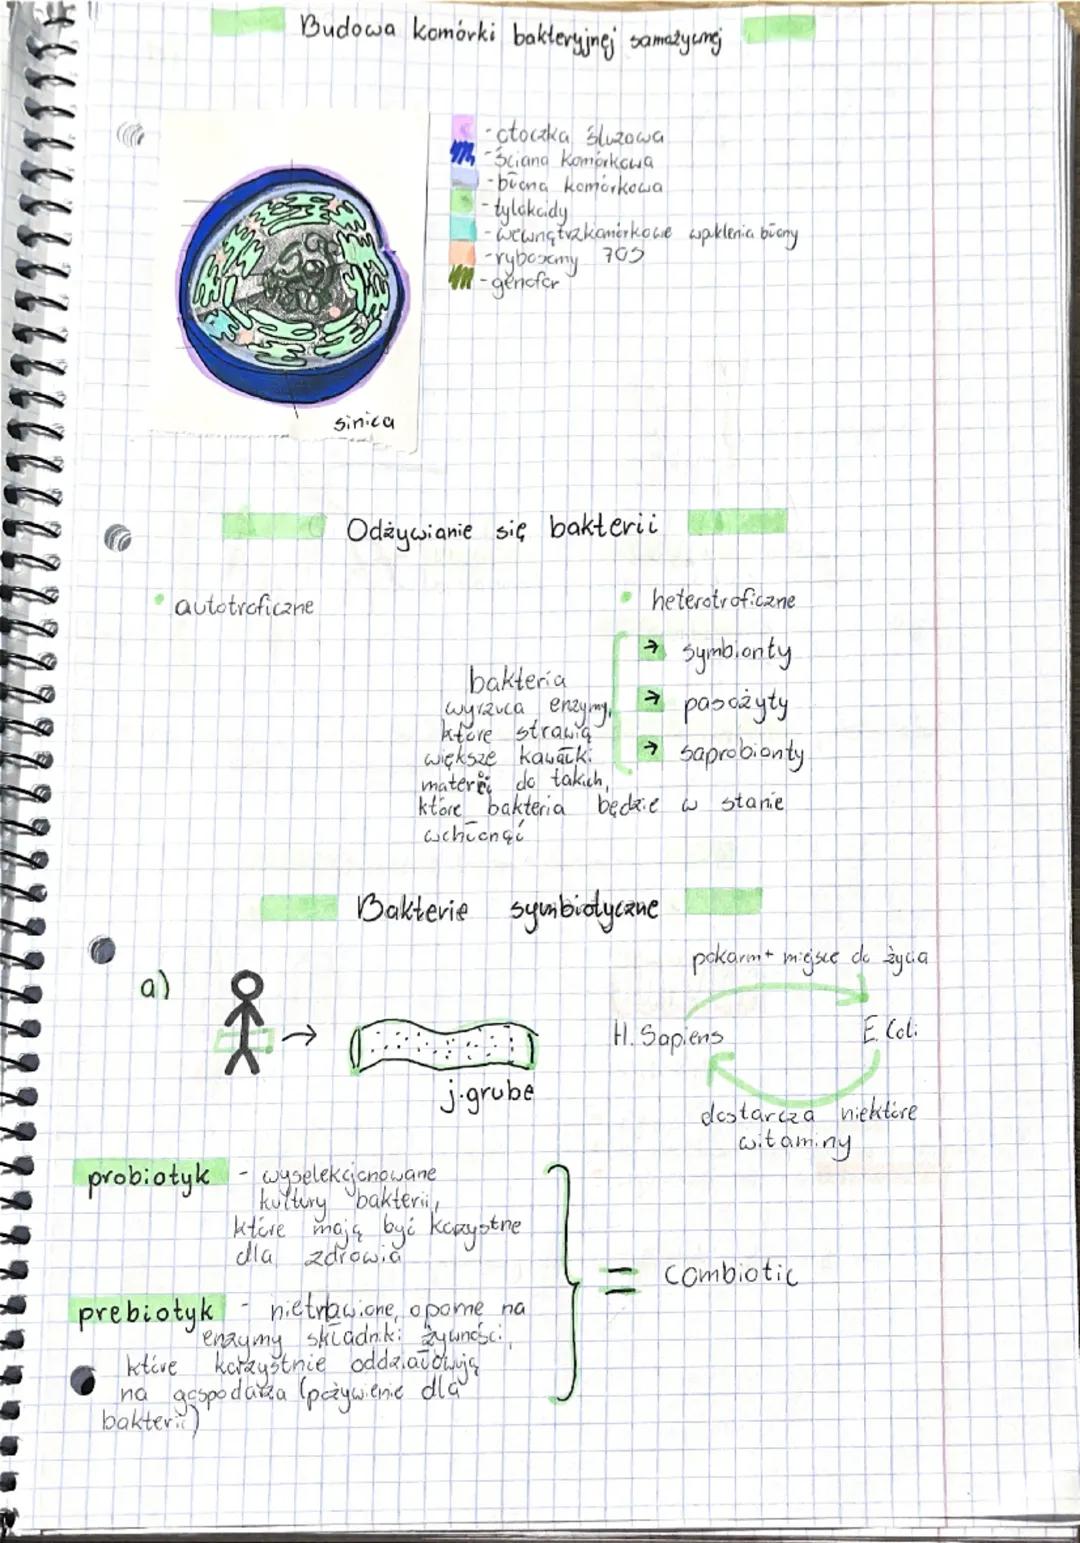 Budowa komórki bakteryjnej samożywnej
- otoczka śluzowa
- ściana komórkowa
- błona komórkowa
- tylakoidy
- wewnątrzkomórkowe wpuklenia błony
- rybosomy 70S
- genofor
sinica
Odżywianie się bakterii
• autotroficzne
• heterotroficzne
→ symbionty
→ pasożyty
→ saprobionty
bakteria
wyrzuca enzymy,
które strawią
większe kawałki
materii do takich,
które bakteria będzie w stanie
wchłonąć
Bakterie symbiotyczne
a)
→
j.grube
pokarm + miejsce do życia
H. Sapiens
E. Coli
dostarcza niektóre
witaminy
probiotyk - wyselekcjonowane
kultury bakterii,
które mają być korzystne
dla zdrowia
prebiotyk - nietrawione, oporne na
enzymy składniki żywności,
które korzystnie oddziałowują
na gospodarza (pożywienie dla
bakterii)
= combiotic